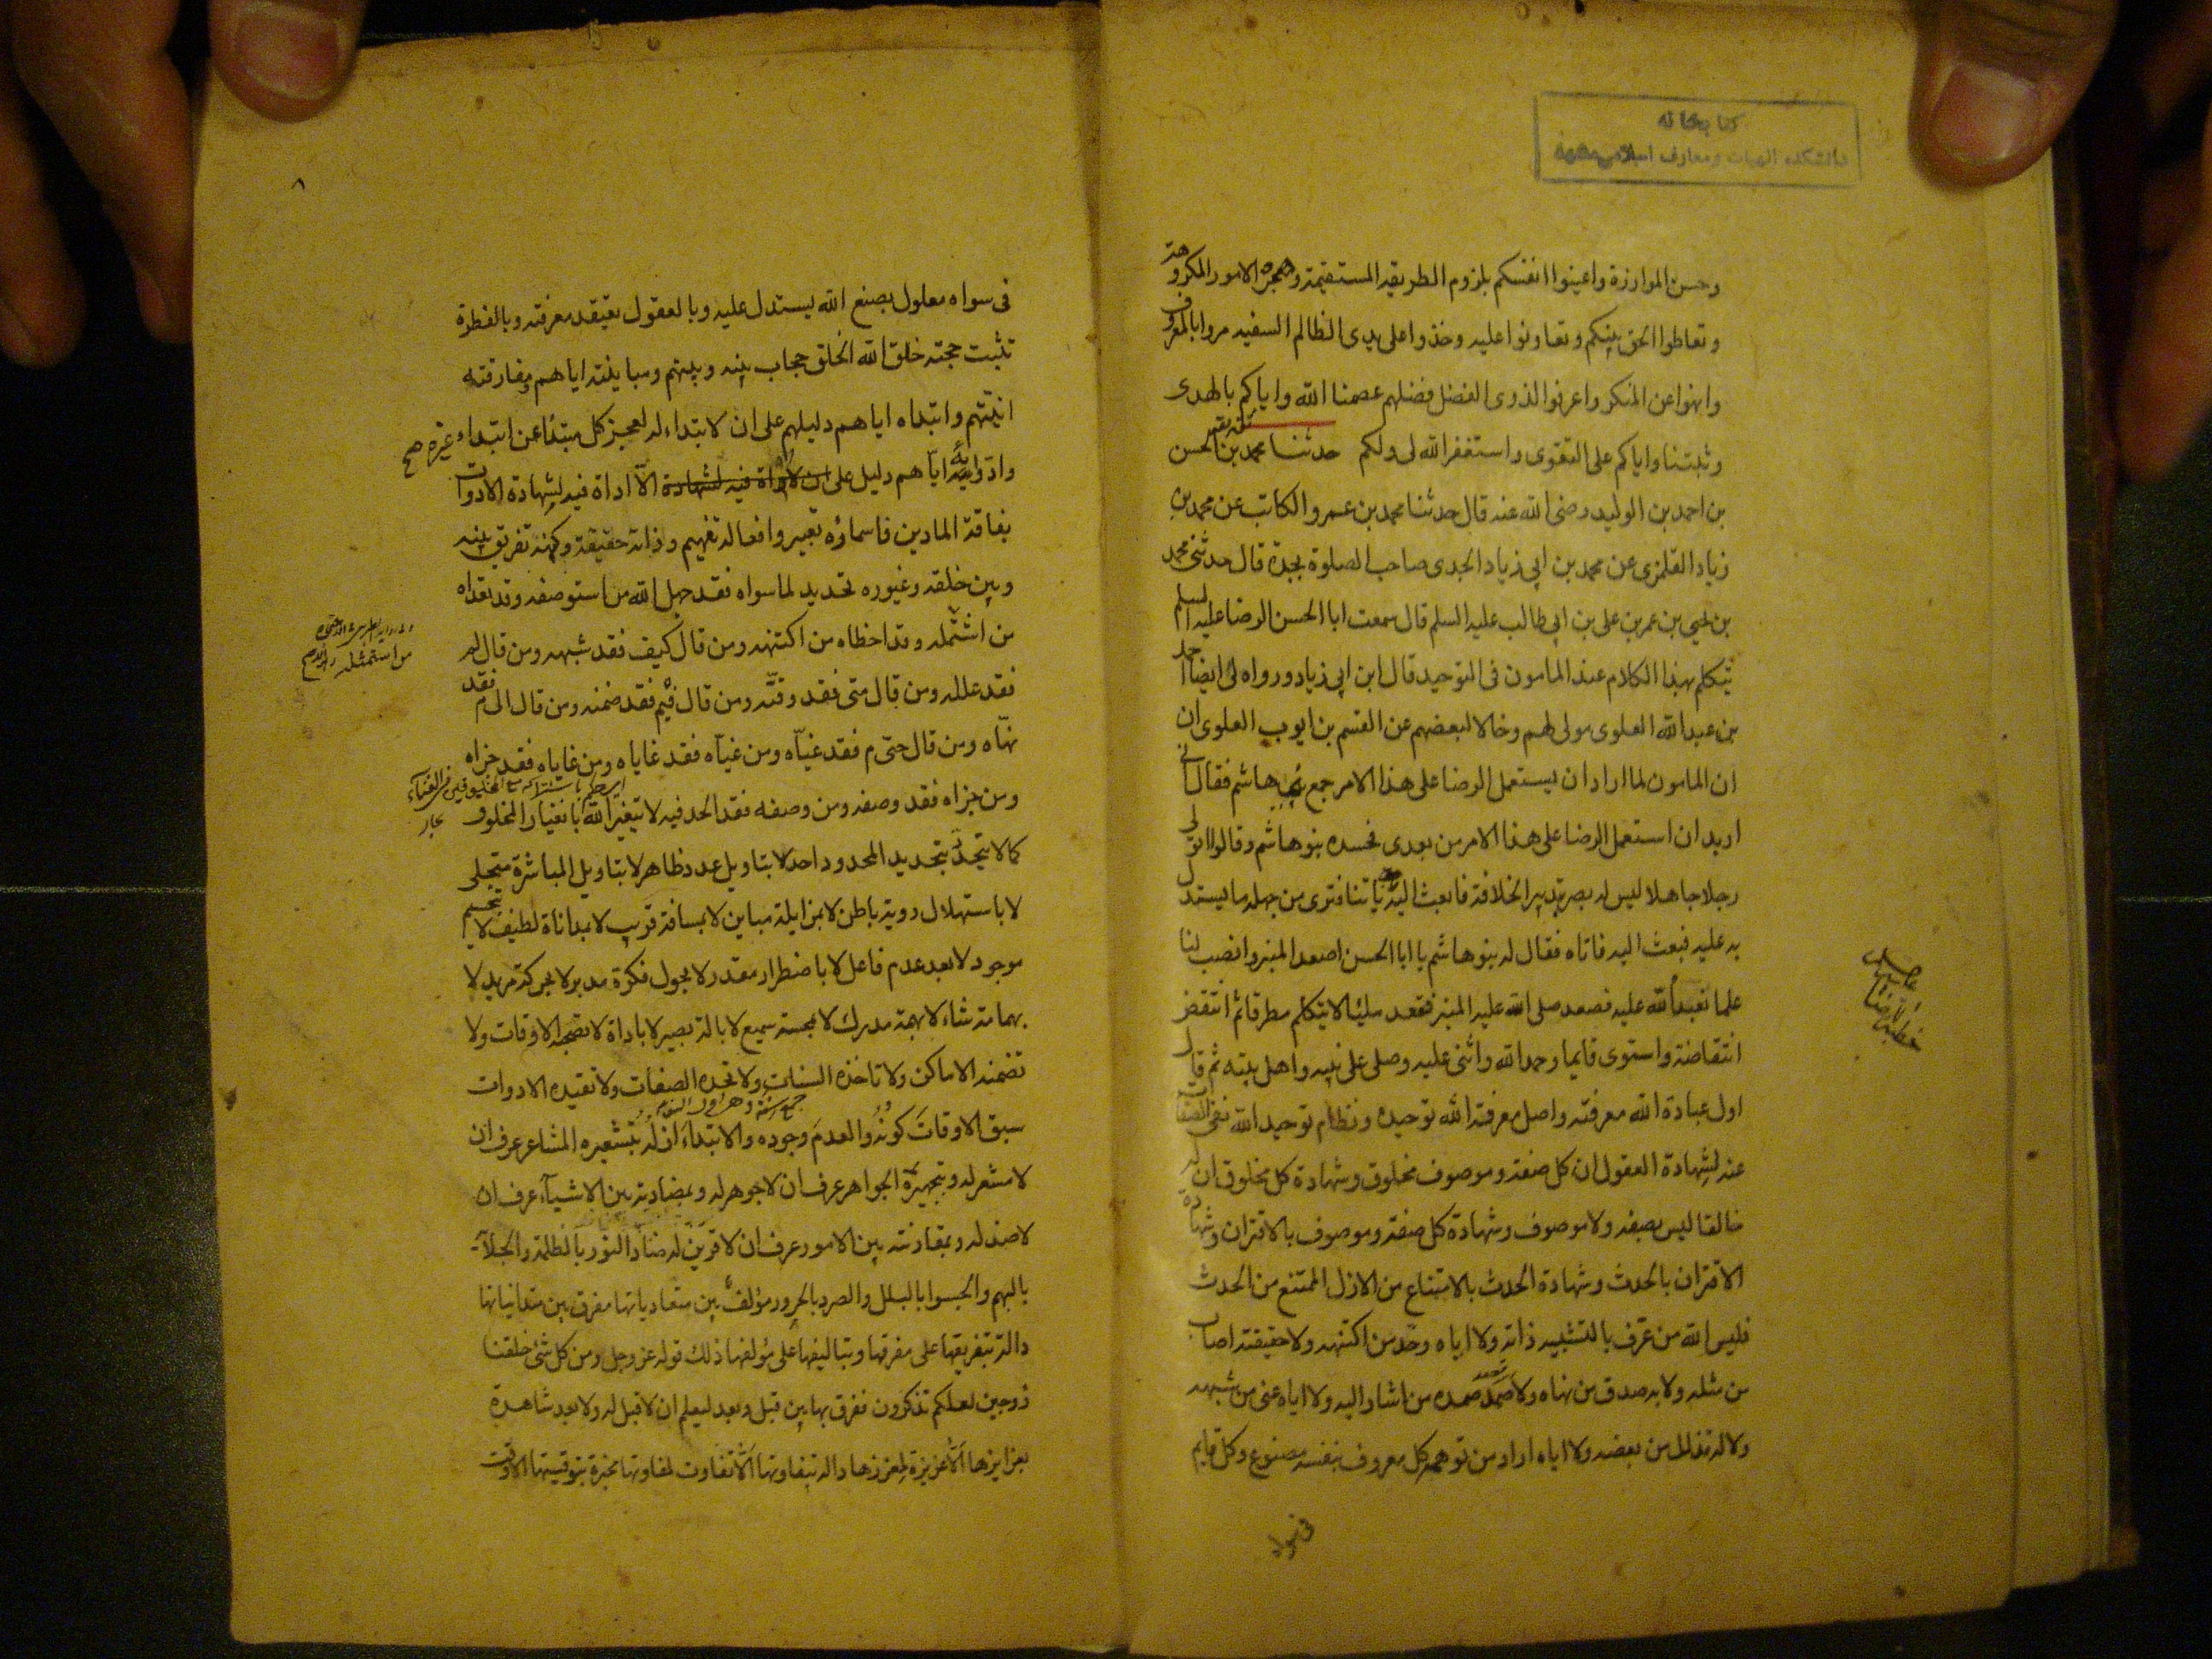 كتابخانه
دانشكده الهيات ومعارف اسلامى مشهد
وحسن الموازرة واعينوا انفسكم بلزوم الطريقه المستقيمة وهجر الامور المكروهة
وتعاطوا الحق بينكم وتعاونوا عليه وخذوا على يدى الظالم السفيه مروا بالمعروف
وانهوا عن المنكر واعرفوا الذوى الفضل فضلهم عصمنا الله واياكم بالهدى
وثبتنا واياكم على التقوى واستغفر الله لى ولكم حدثنا محمد بن الحسن
بن احمد بن الوليد رضى الله عنه قال حدثنا محمد بن عمرو الكاتب عن محمد بن
زياد القلزمى عن محمد بن ابى زياد الجدى صاحب الصلوة بجدة قال حدثنى محمد
بن يحيى بن عمر بن على بن ابى طالب عليه السلم قال سمعت ابا الحسن الرضا عليه السلم
يتكلم بهذا الكلام عند المامون فى التوحيد قال ابن ابى زياد ورواه لى ايضا احمد
بن عبد الله العلوى مولى لهم وخالا لبعضهم عن القسم بن ايوب العلوى ان
ان المامون لما اراد ان يستعمل الرضا على هذا الامر جمع بنى هاشم فقال انى
اريد ان استعمل الرضا على هذا الامر من بعدى فحسده بنو هاشم وقالوا اتولى
رجلا جاهلا ليس له بصر بتدبير الخلافة فابعث اليه ياتنا فترى من جهله ما يستدل
به عليه فبعث اليه فاتاه فقال له بنو هاشم يا ابا الحسن اصعد المنبر وانصب لنا
علما نعبد الله عليه فصعد صلى الله عليه المنبر فقعد مليا لا يتكلم مطرقا ثم انتفض
انتفاضة واستوى قايما وحمد الله واثنى عليه وصلى على نبيه واهل بيته ثم قال
اول عبادة الله معرفته واصل معرفة الله توحيده ونظام توحيد الله نفى الصفات
عنه لشهادة العقول ان كل صفة وموصوف مخلوق وشهادة كل مخلوق ان له
خالقا ليس بصفه ولا موصوف وشهادة كل صفة وموصوف بالاقتران وشهادة
الاقتران بالحدث وشهادة الحدث بالامتناع من الازل الممتنع من الحدث
فليس الله من عرف بالتشبيه ذاته ولا اياه وحد من اكتنهه ولا حقيقته اصاب
من مثله ولا به صدق من نهاه ولا صمد صمده من اشار اليه ولا اياه عنى من شبهه
ولا له تذلل من بعضه ولا اياه اراد من توهمه كل معروف بنفسه مصنوع وكل قايم
فى سواه
فى سواه معلول بصنع الله يستدل عليه وبالعقول تعتقد معرفته وبالفطرة
تثبت حجته خلق الله الخلق حجاب بينه وبينهم ومباينته اياهم ومفارقته
انيتهم وابتداه اياهم دليلهم على ان لا ابتداء له لعجز كل مبتدا عن ابتداء غيره صح
وادوايه اياهم دليل على ان لا اداة فيه لشهادة الا اداة فيه لشهادة الادوات
بفاقة المادين فاسماؤه تعبير وافعاله تفهيم وذاته حقيقة وكنهه تفريق بينه
وبين خلقه وغيوره تحديد لما سواه فقد جهل الله من استوصفه وقد تعداه
من اشتمله وقد اخطاه من اكتنهه ومن قال كيف فقد شبهه ومن قال لم
من استمثله
فقد علله ومن قال متى فقد وقته ومن قال فيم فقد ضمنه ومن قال الى م فقد
نهاه ومن قال حتى م فقد غياه ومن غياه فقد غاياه ومن غاياه فقد جزاه
ومن جزاه فقد وصفه ومن وصفه فقد الحد فيه لا يتغير الله بانغيار المخلوق
كما لا يتحد بتحديد المحدود احد لا بتاويل عدد ظاهر لا بتاويل المباشرة متجلى
لا باستهلال روية باطن لا بمزايلة مباين لا بمسافة قريب لا بمداناة لطيف لا بتجسيم
موجود لا بعد عدم فاعل لا باضطرار مقدر لا بجول فكرة مدبر لا بحركة مريد لا
بهمامة شاء لا بهمة مدرك لا بمجسة سميع لا بالة بصير لا باداة لا تصحبه الاوقات ولا
تضمنه الاماكن ولا تاخذه السنات ولا تحده الصفات ولا تقيده الادوات
سبق الاوقات كونه والعدم وجوده والابتداء ازله بتشعيره المشاعر عرف ان
لا مشعر له وبتجهيره الجواهر عرف ان لا جوهر له وبمضادته بين الاشياء عرف ان
لا ضد له وبمقارنته بين الامور عرف ان لا قرين له ضاد النور بالظلمة والجلاء
بالبهم والجسو بالبلل والصرد بالحرور مؤلف بين متعادياتها مفرق بين متدانياتها
دالة بتفريقها على مفرقها وبتاليفها على مؤلفها ذلك قوله عز وجل ومن كل شئ خلقنا
زوجين لعلكم تذكرون ففرق بها بين قبل وبعد ليعلم ان لا قبل له ولا بعد شاهدة
بغرايزها الا غريزة لمغرزها دالة بتفاوتها الا تفاوت لمفاوتها مخبرة بتوقيتها الا وقت